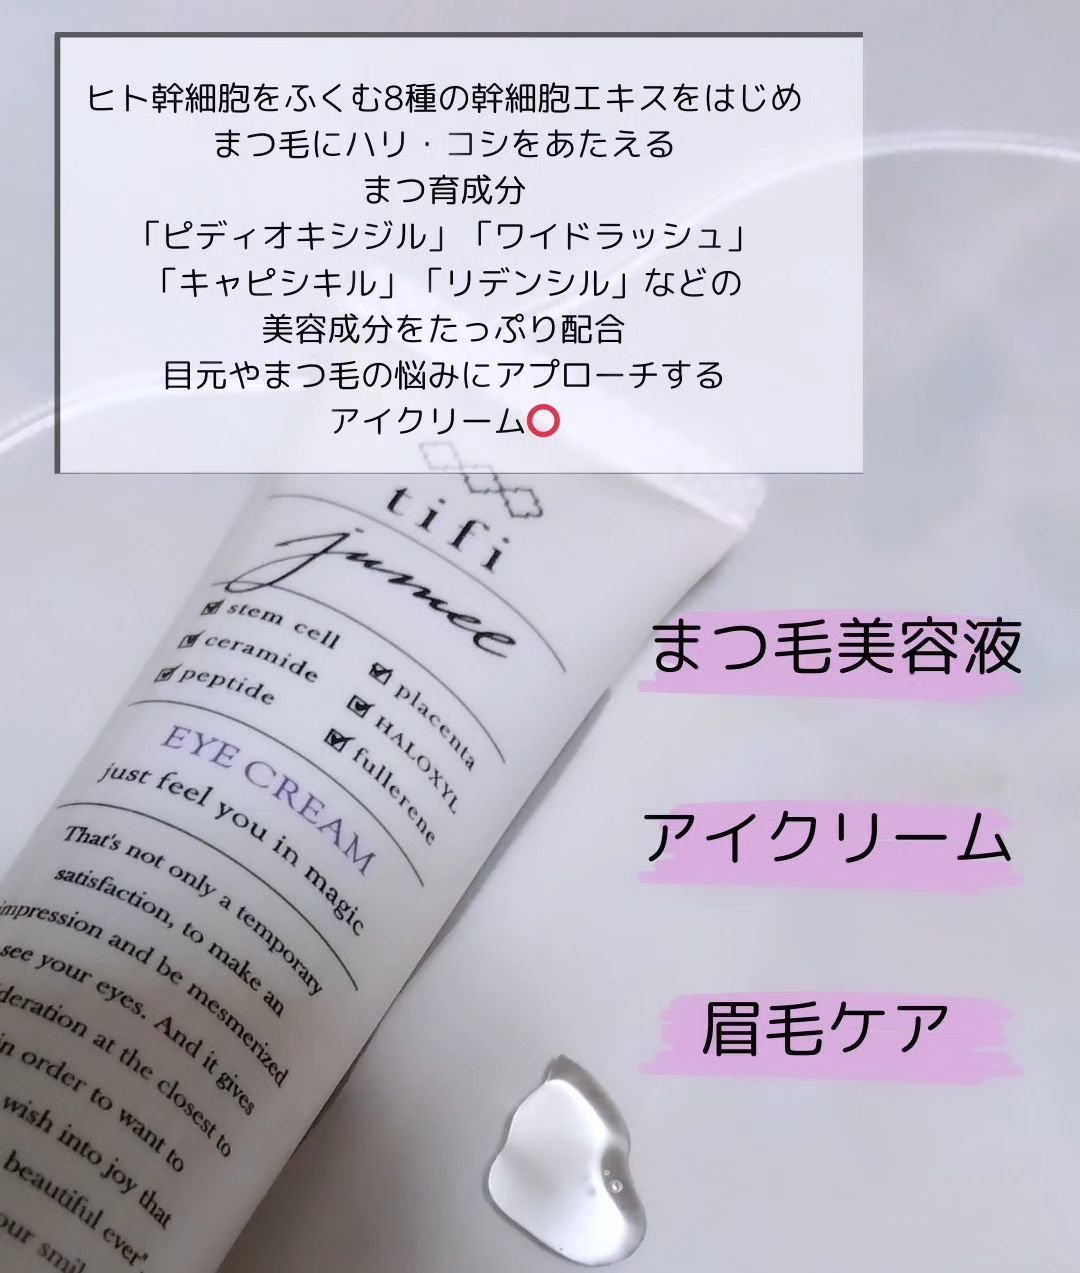 ヒト幹細胞をふくむ8種の幹細胞エキスをはじめ
まつ毛にハリ・コシをあたえる
まつ育成分
「ピディオキシジル」「ワイドラッシュ」
「キャピシキル」「リデンシル」などの
美容成分をたっぷり配合
目元やまつ毛の悩みにアプローチする
アイクリーム⭕
tifi
jumee
stem cell
ceramide
peptide
placenta
HALOXYL
fullerene
EYE CREAM
just feel you in magic
That's not only a temporary
satisfaction, to make an
impression and be mesmerized
see your eyes. And it gives
at the closest to
in order to want to
wish into joy that
beautiful ever'
まつ毛美容液
アイクリーム
眉毛ケア